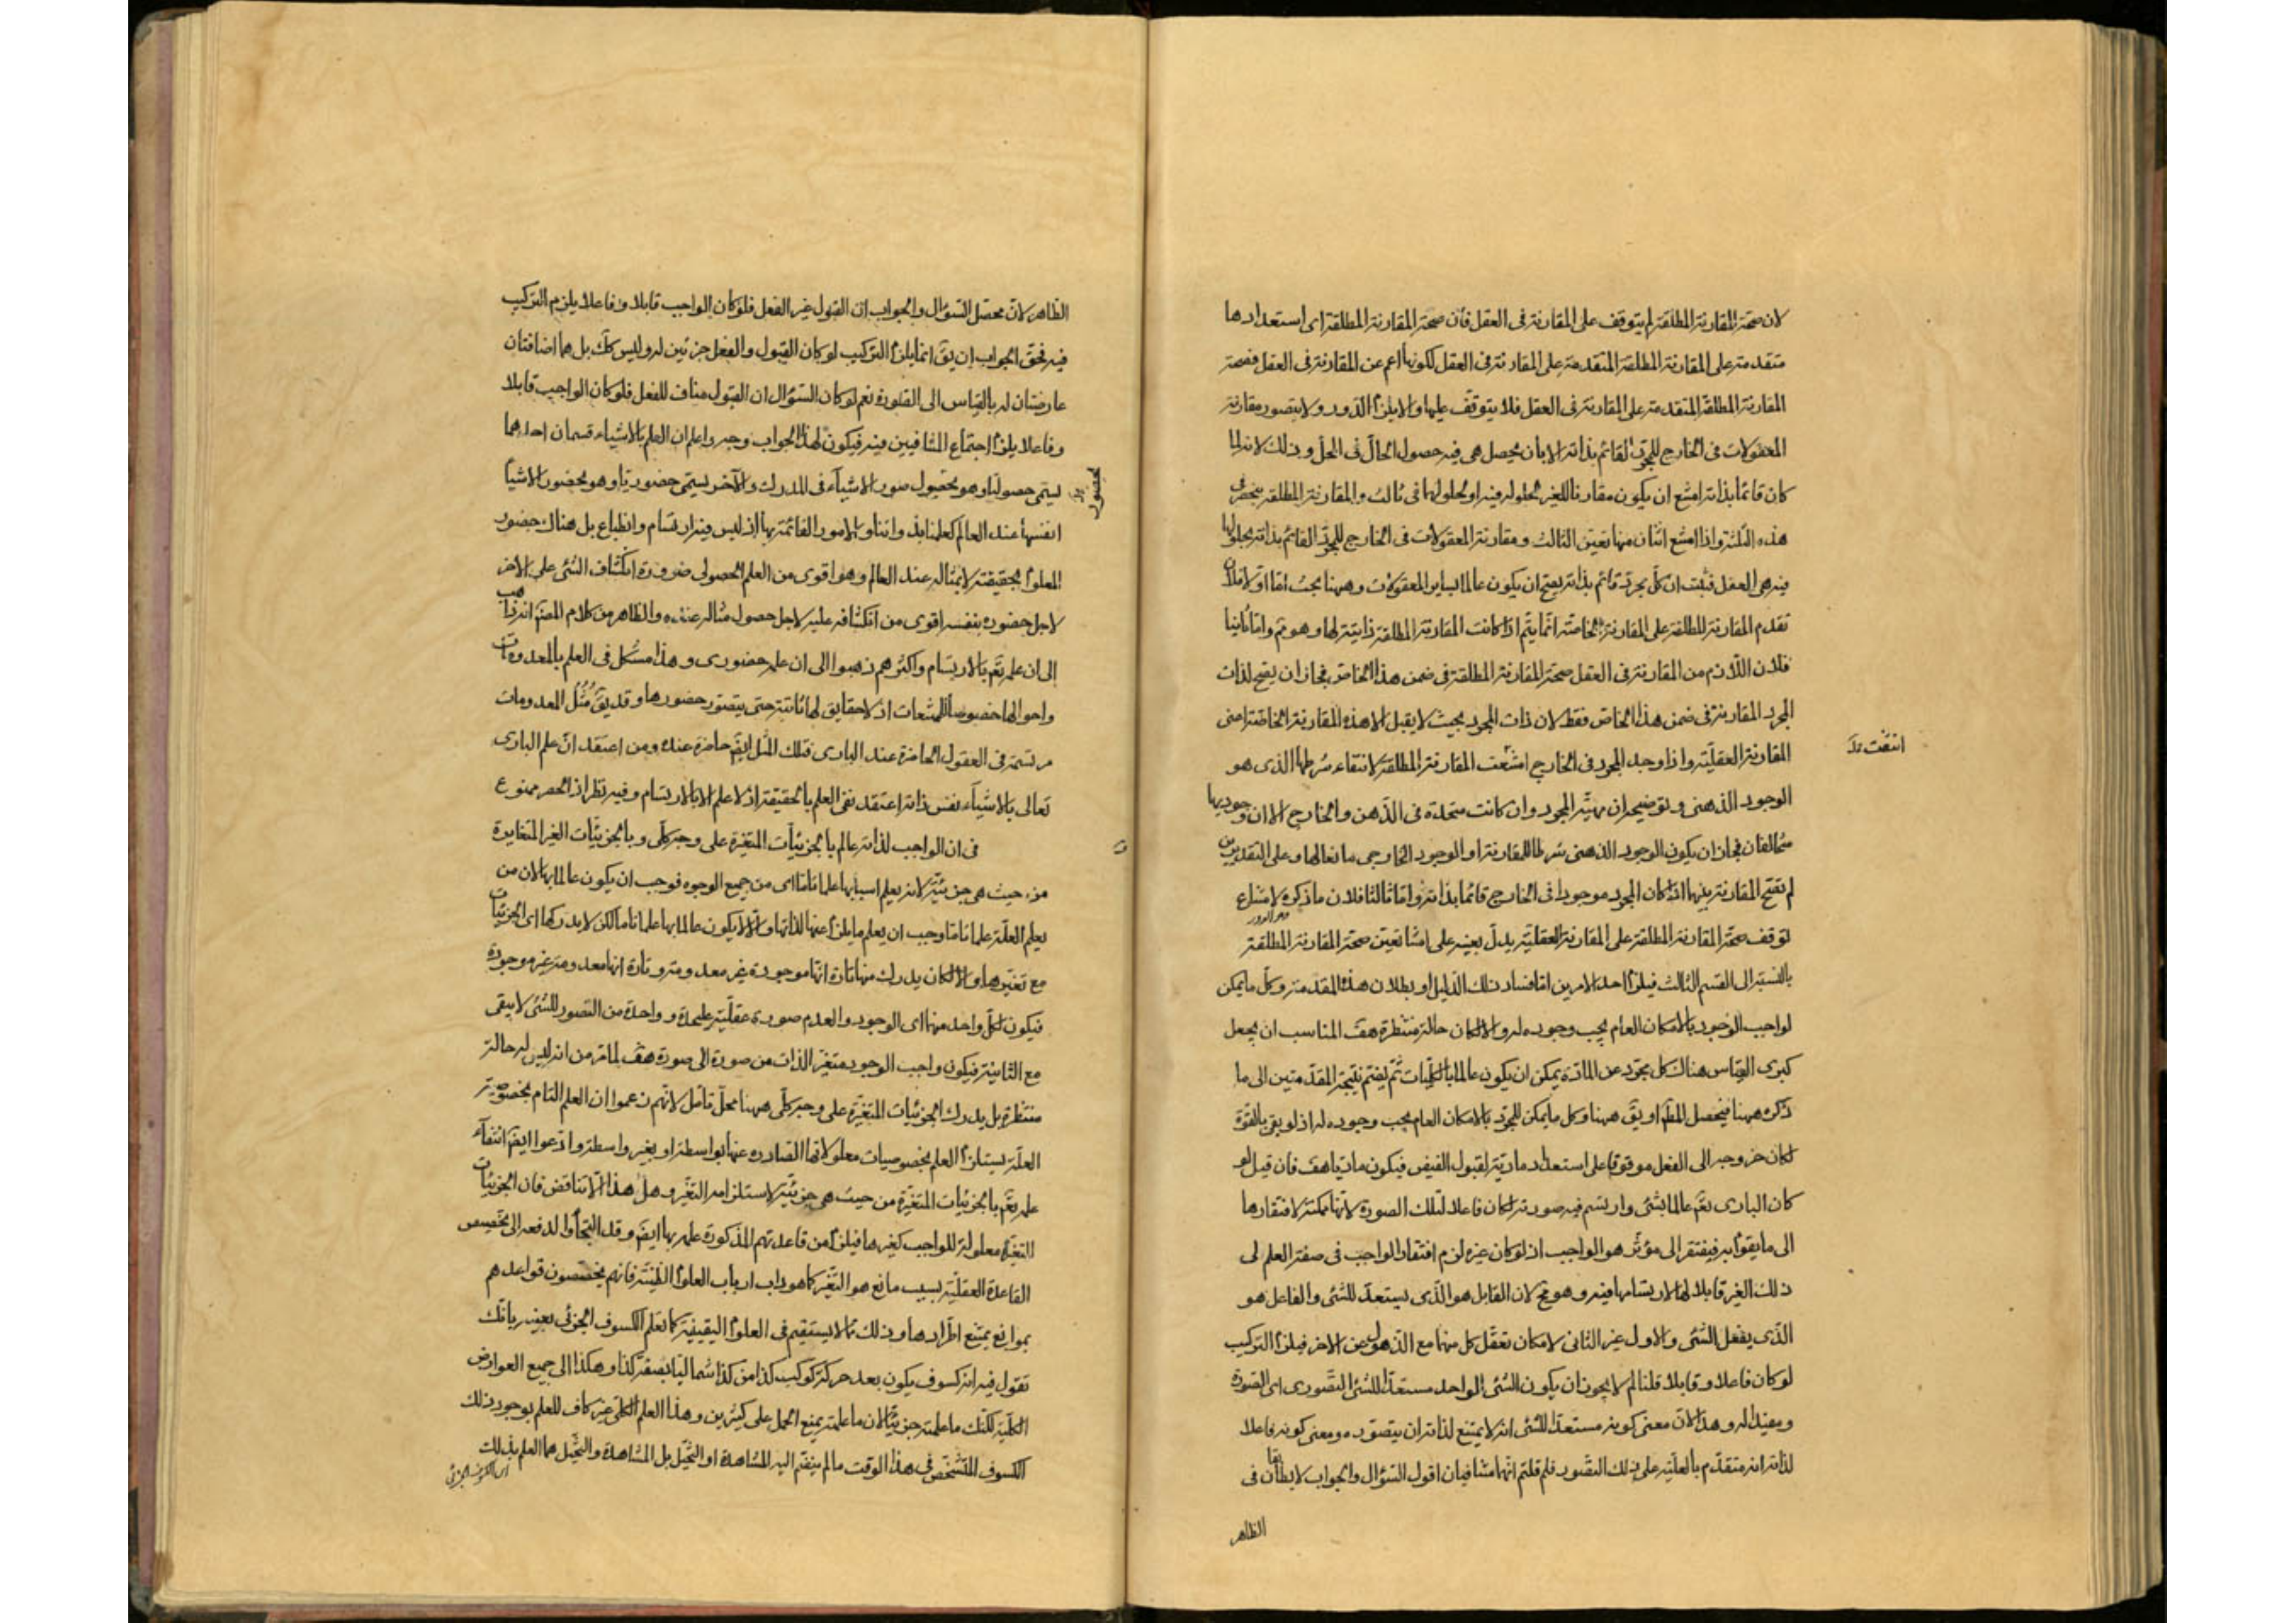 لان صحة المقارنة المطلقة لم يتوقف على المقارنة فى العقل فان صحة المقارنة المطلقة اى استعدادها
متقدمة على المقارنة المطلقة المتقدمة على المقارنة فى العقل لكونها اعم عن المقارنة فى العقل فصحة
المقارنة المطلقة المتقدمة على المقارنة فى العقل فلا يتوقف عليها والا يلزم الدور ولا يتصور مقارنة
المعقولات فى الخارج للمجرد القائم بذاته الا بان يحصل هى فيه حصول الحال فى المحل وذلك لانه لما
كان قائما بذاته امتنع ان يكون مقارنا للغير لحلوله فيه او لحلولهما فى ثالث والمقارنة المطلقة ينحصر فى
هذه الثلثة واذا امتنع اثنان منها تعين الثالث ومقارنة المعقولات فى الخارج للمجرد القائم بذاته بحلولها
فيه هى العقل فثبت ان كل مجرد قائم بذاته يصح ان يكون عالما بساير المعقولات وههنا بحث اما اولا فلان
تقدم المقارنة المطلقة على المقارنة الخاصة انما يتم اذا كانت المقارنة المطلقة ذاتية لها وهو مم واما ثانيا
فلان اللازم من المقارنة فى العقل صحة المقارنة المطلقة فى ضمن هذا الخاص فجاز ان يصح لذات
المجرد المقارنة فى ضمن هذا الخاص فقط لان ذات المجرد بحيث لا يقبل الا هذه المقارنة الخاصة اعنى
المقارنة العقلية واذا وجد المجرد فى الخارج امتنعت المقارنة المطلقة لانتفاء شرطها الذى هو
انتفت بدل
الوجود الذهنى وتوضيحه ان مهية المجرد وان كانت متحدة فى الذهن والخارج الا ان وجوديها
متخالفان فجاز ان يكون الوجود الذهنى شرطا للمقارنة او الوجود الخارجى مانعا لها وعلى التقديرين
لم تصح المقارنة بينهما اذا كان المجرد موجودا فى الخارج قائما بذاته واما ثالثا فلان ما ذكره لامتناع
وهو الدور
توقف صحة المقارنة المطلقة على المقارنة العقلية يدل بعينه على امتناع تعين صحة المقارنة المطلقة
بالنسبة الى القسم الثالث فيلزم احد الامرين اما فساد ذلك الدليل او بطلان هذه المقدمة وكل ما يمكن
لواجب الوجود بالامكان العام يجب وجوده له والا لكان حالة منتظرة هف المناسب ان يجعل
كبرى القياس هناك كل مجرد عن المادة يمكن ان يكون عالما بالكليات ثم يضم نتيجة المقدمتين الى ما
ذكره ههنا فيحصل المط او يق ههنا وكل ما يمكن للمجرد بالامكان العام يجب وجوده له اذ لو بقى بالقوة
لكان خروجه الى الفعل موقوفا على استعداد مادته لقبول الفيض فيكون ماديا هف فان قيل لو
كان البارى تع عالما بشئ وارتسم فيه صورته لكان فاعلا لتلك الصورة لانها ممكنة لافتقارها
الى ما يقوم به فيفتقر الى مؤثر هو الواجب اذ لو كان غيره لزم افتقار الواجب فى صفة العلم الى
ذلك الغير قابلا لها لارتسامها فيه وهو مح لان القابل هو الذى يستعد للشئ والفاعل هو
الذى يفعل الشئ والاول غير الثانى لامكان تعقل كل منهما مع الذهول عن الاخر فيلزم التركيب
لو كان فاعلا وقابلا قلنا لم لا يجوز ان يكون الشئ الواحد مستعدا للشئ التصورى اى الصورة
ومفيدا له وهذا لان معنى كونه مستعدا للشئ انه لا يمتنع لذاته ان يتصوره ومعنى كونه فاعلا
لذاته انه متقدم بالعلية على ذلك التصور فلم قلتم انهما متنافيان اقول السؤال والجواب لا يطابقان فى
الظاهر
الظاهر لان محصل السؤال والجواب ان القبول غير الفعل فلو كان الواجب قابلا وفاعلا يلزم التركيب
فيه فحق الجواب ان يق انما يلزم التركيب لو كان القبول والفعل جزئين له وليس كك بل هما اضافتان
عارضتان له بالقياس الى الصورة نعم لو كان السؤال ان القبول مناف للفعل فلو كان الواجب قابلا
وفاعلا يلزم اجتماع المتنافيين فيه فيكون لهذا الجواب وجه واعلم ان العلم بالاشياء قسمان احدهما
يسمى حصوليا وهو بحصول صور الاشياء فى المدرك والآخر يسمى حضوريا وهو بحضور الاشيا
بحصول بدل
انفسها عند العالم كعلمنا بذواتنا والامور القائمة بها اذ ليس فيه ارتسام وانطباع بل هناك حضور
المعلوم بحقيقته لا بمثاله عند العالم وهو اقوى من العلم الحصولى ضرورة انكشاف الشئ على الاخر
لاجل حضوره بنفسه اقوى من انكشافه عليه لاجل حصول مثاله عنده والظاهر من كلام المص انه ذاهب
الى ان علمه تع بالارتسام واكثرهم ذهبوا الى ان علمه حضورى وهذا مشكل فى العلم بالمعدومات
واحوالها خصوصا الممتنعات اذ لا حقايق لها ثابتة حتى يتصور حضورها وقد يق مُثُل المعدومات
مرتسمة فى العقول الحاضرة عند البارى فتلك المثل ايضا حاضرة عنده ومن اعتقد ان علم البارى
تعالى بالاشياء نفس ذاته اعتقد نفى العلم بالحقيقة اذ لا علم الا بالارتسام وفيه نظر اذ الحصر ممنوع
فى ان الواجب لذاته عالم بالجزئيات المتغيرة على وجه كلى وبالجزئيات الغير المتغايرة
من حيث هى جزئية لانه يعلم اسبابها علما تاما اى من جميع الوجوه فوجب ان يكون عالما بها لان من
يعلم العلة علما تاما وجب ان يعلم ما يلزم عنها لذاتها والا لا يكون عالما بها علما تاما لكن لا يدركها اى الجزئيات
مع تغيرها والا لكان يدرك منها تارة انها موجودة غير معدومة وتارة انها معدومة غير موجودة
فيكون لكل واحد منهما اى الوجود والعدم صورة عقلية عليحدة وواحدة من الصور للشئ لا يبقى
مع الثانية فيكون واجب الوجود متغير الذات من صورة الى صورة هف لما مر من انه ليس له حالة
منتظرة بل يدرك الجزئيات المتغيرة على وجه كلى ههنا محل تامل لانهم زعموا ان العلم التام بخصوصية
العلة يستلزم العلم بخصوصيات معلولاتها الصادرة عنها بواسطة او بغير واسطة وادعوا ايضا انتفاء
علمه تع بالجزئيات المتغيرة من حيث هى جزئية لاستلزامه التغير وهل هذا الا تناقض فان الجزئيات
المتغيرة معلولة للواجب كغيرها فيلزم من قاعدتهم المذكورة علمه بها ايضا وقد التجأوا لدفعه الى تخصيص
القاعدة العقلية بسبب مانع هو التغير كما هو داب ارباب العلوم الظنية فانهم يخصصون قواعدهم
بموانع يمتنع اطرادها وذلك مما لا يستقيم فى العلوم اليقينية كما تعلم الكسوف الجزئى بعينه بانك
تقول فيه انه كسوف يكون بعد حركة كوكب كذا من كذا شماليا بصفة كذا وهكذا الى جميع العوارض
الكلية لكنك ما علمته جزئيا لان ما علمته يمنع الحمل على كثيرين وهذا العلم الكلى غير كاف للعلم بوجود ذلك
الكسوف المتشخص فى هذا الوقت ما لم ينضم اليه المشاهدة او التخيل بل المشاهدة والتخيل هما العلم بذلك
اى الكسوف الجزئى